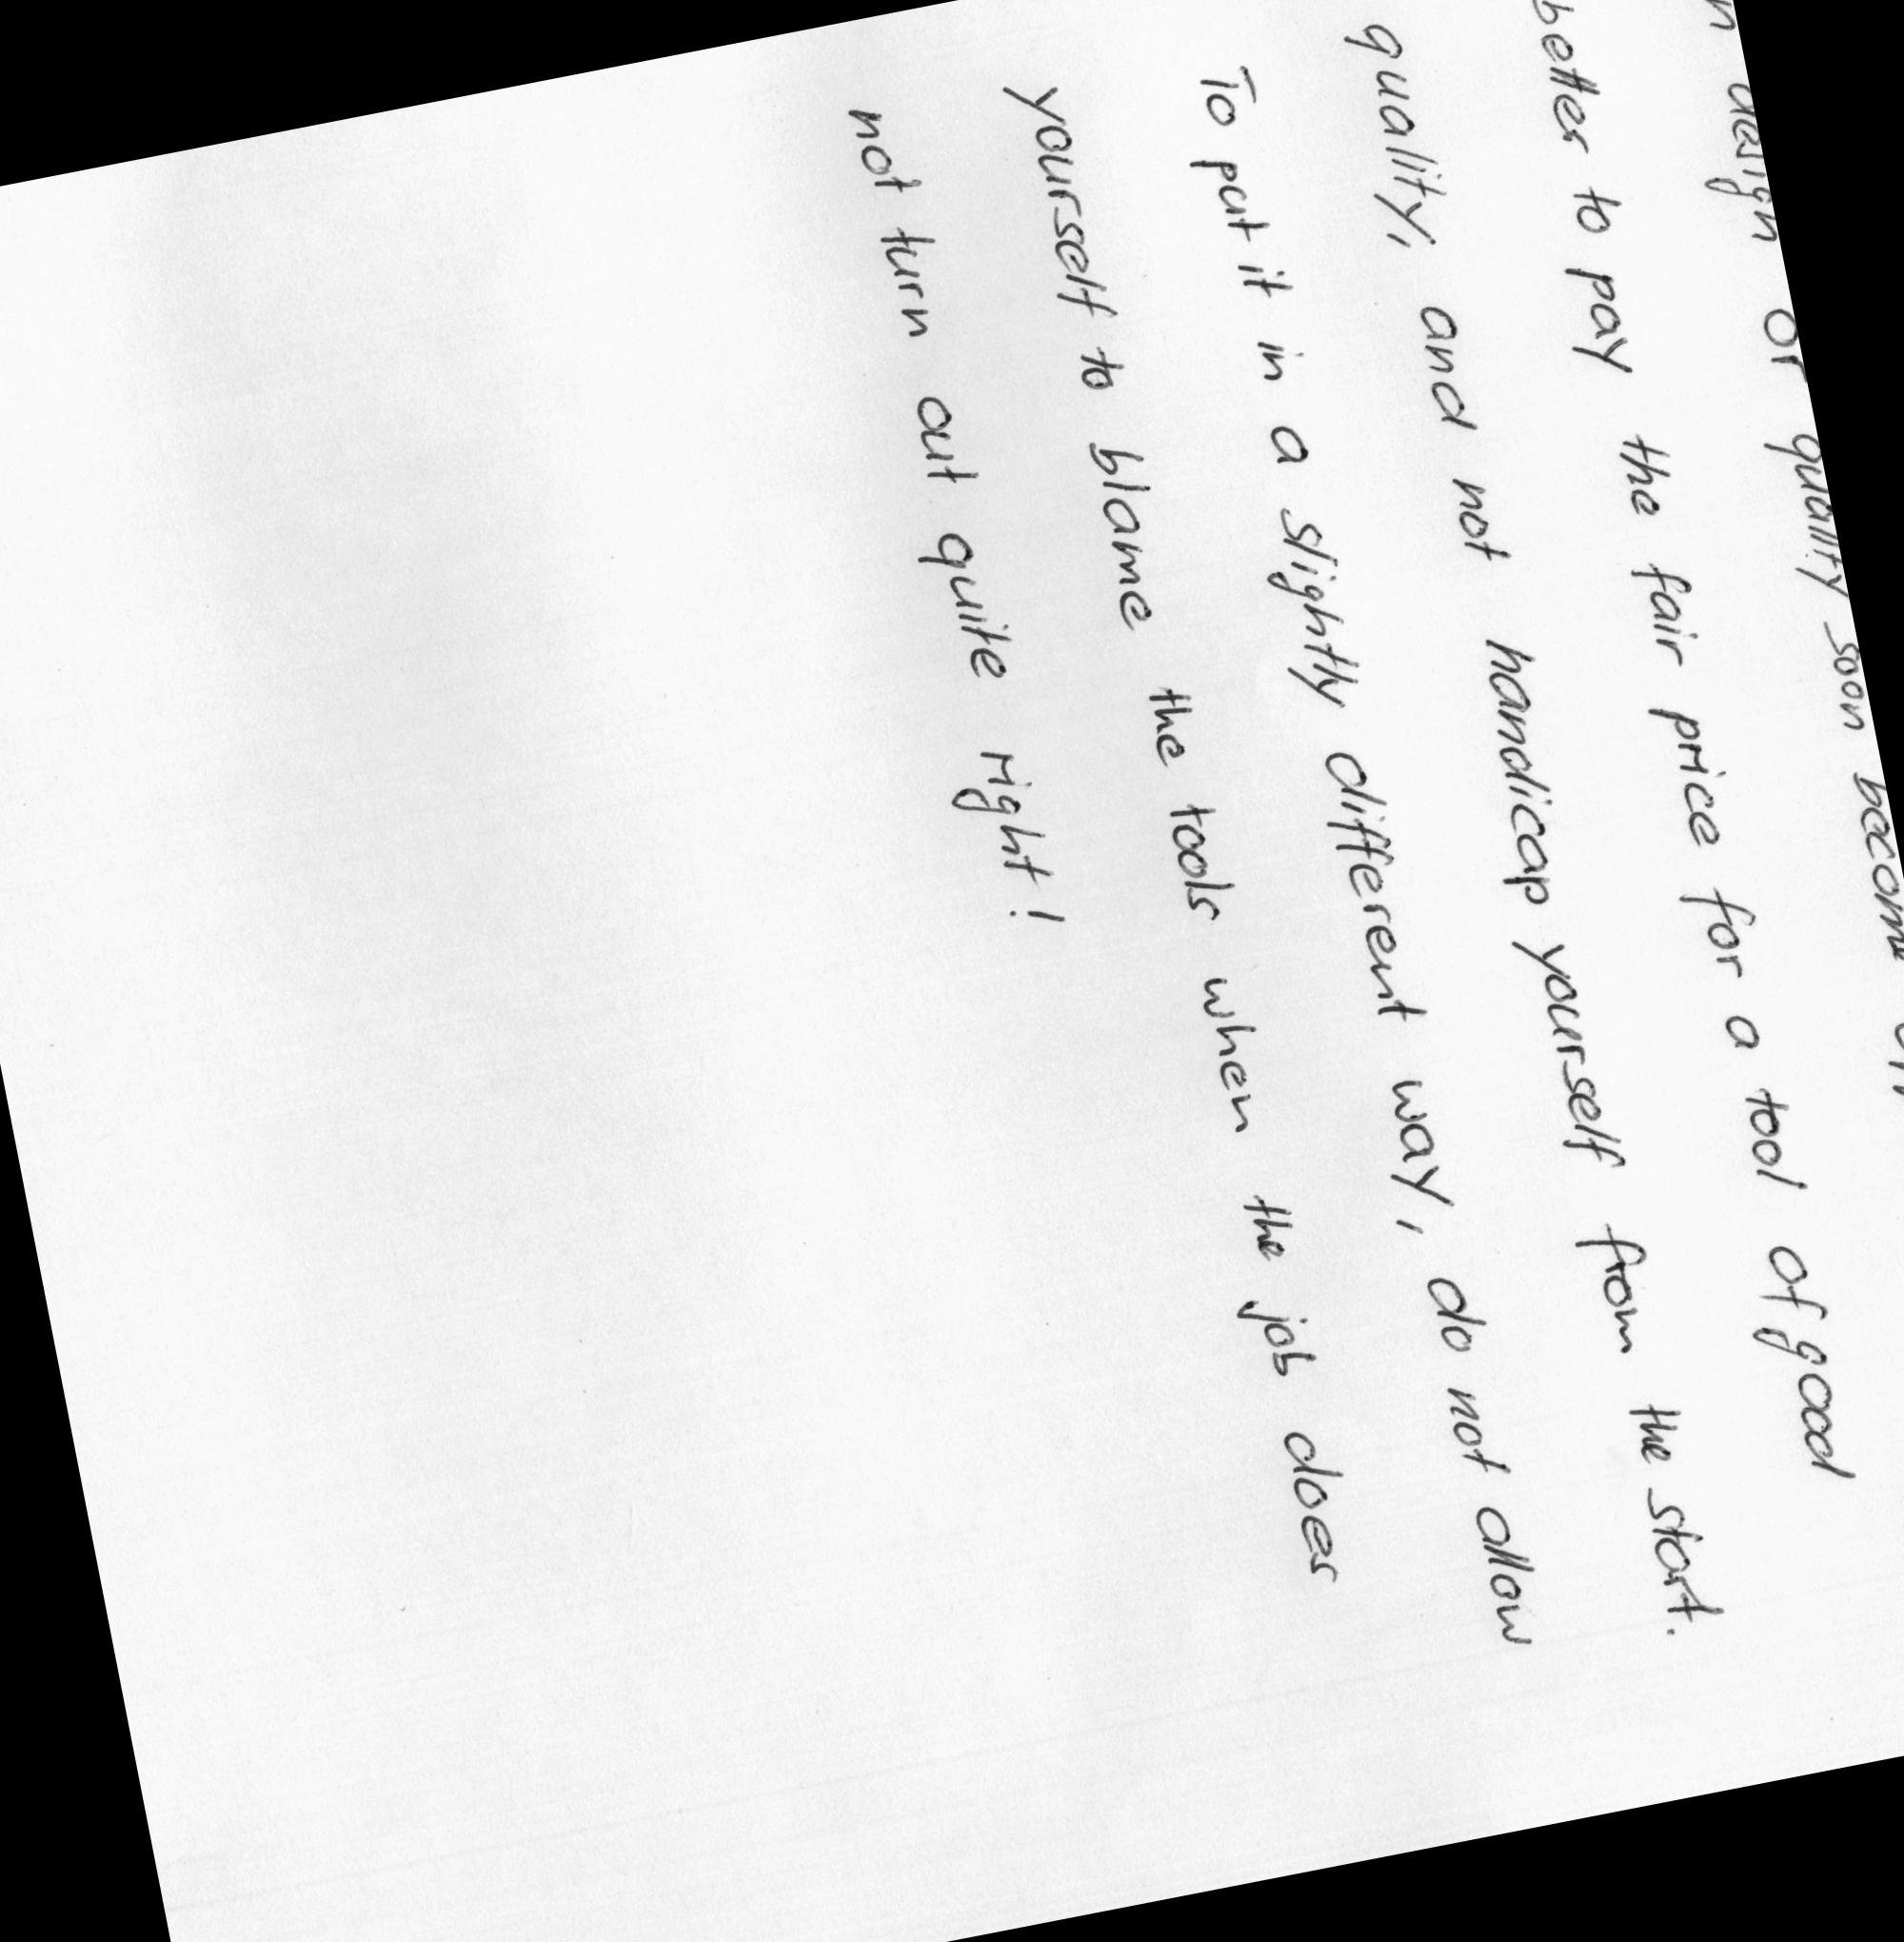 design or quality soon become
better to pay the fair price for a tool of good
quality, and not handicap yourself from the start.
To put it in a slightly different way, do not allow
yourself to blame the tools when the job does
not turn out quite right!